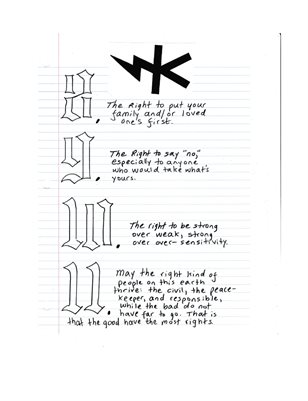 8. The Right to put your
family and/or loved
one's first.
9. The Right to say "no,"
especially to anyone
who would take what's
yours.
10. The right to be strong
over weak, strong
over over-sensitivity.
11. May the right kind of
people on this earth
thrive: the civil, the peace-
keeper, and responsible,
while the bad do not
have far to go. That is
that the good have the most rights.